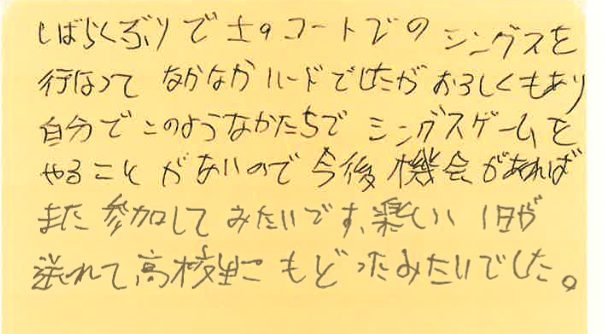 しばらくぶりで土のコートでのシングスを
行なって なかなかハードでしたが おろしくもあり
自分でこのようなかたちで シングスゲームを
やることがないので今後機会があれば
また参加してみたいです、楽しい1日が
送れて高校生にもどったみたいでした。